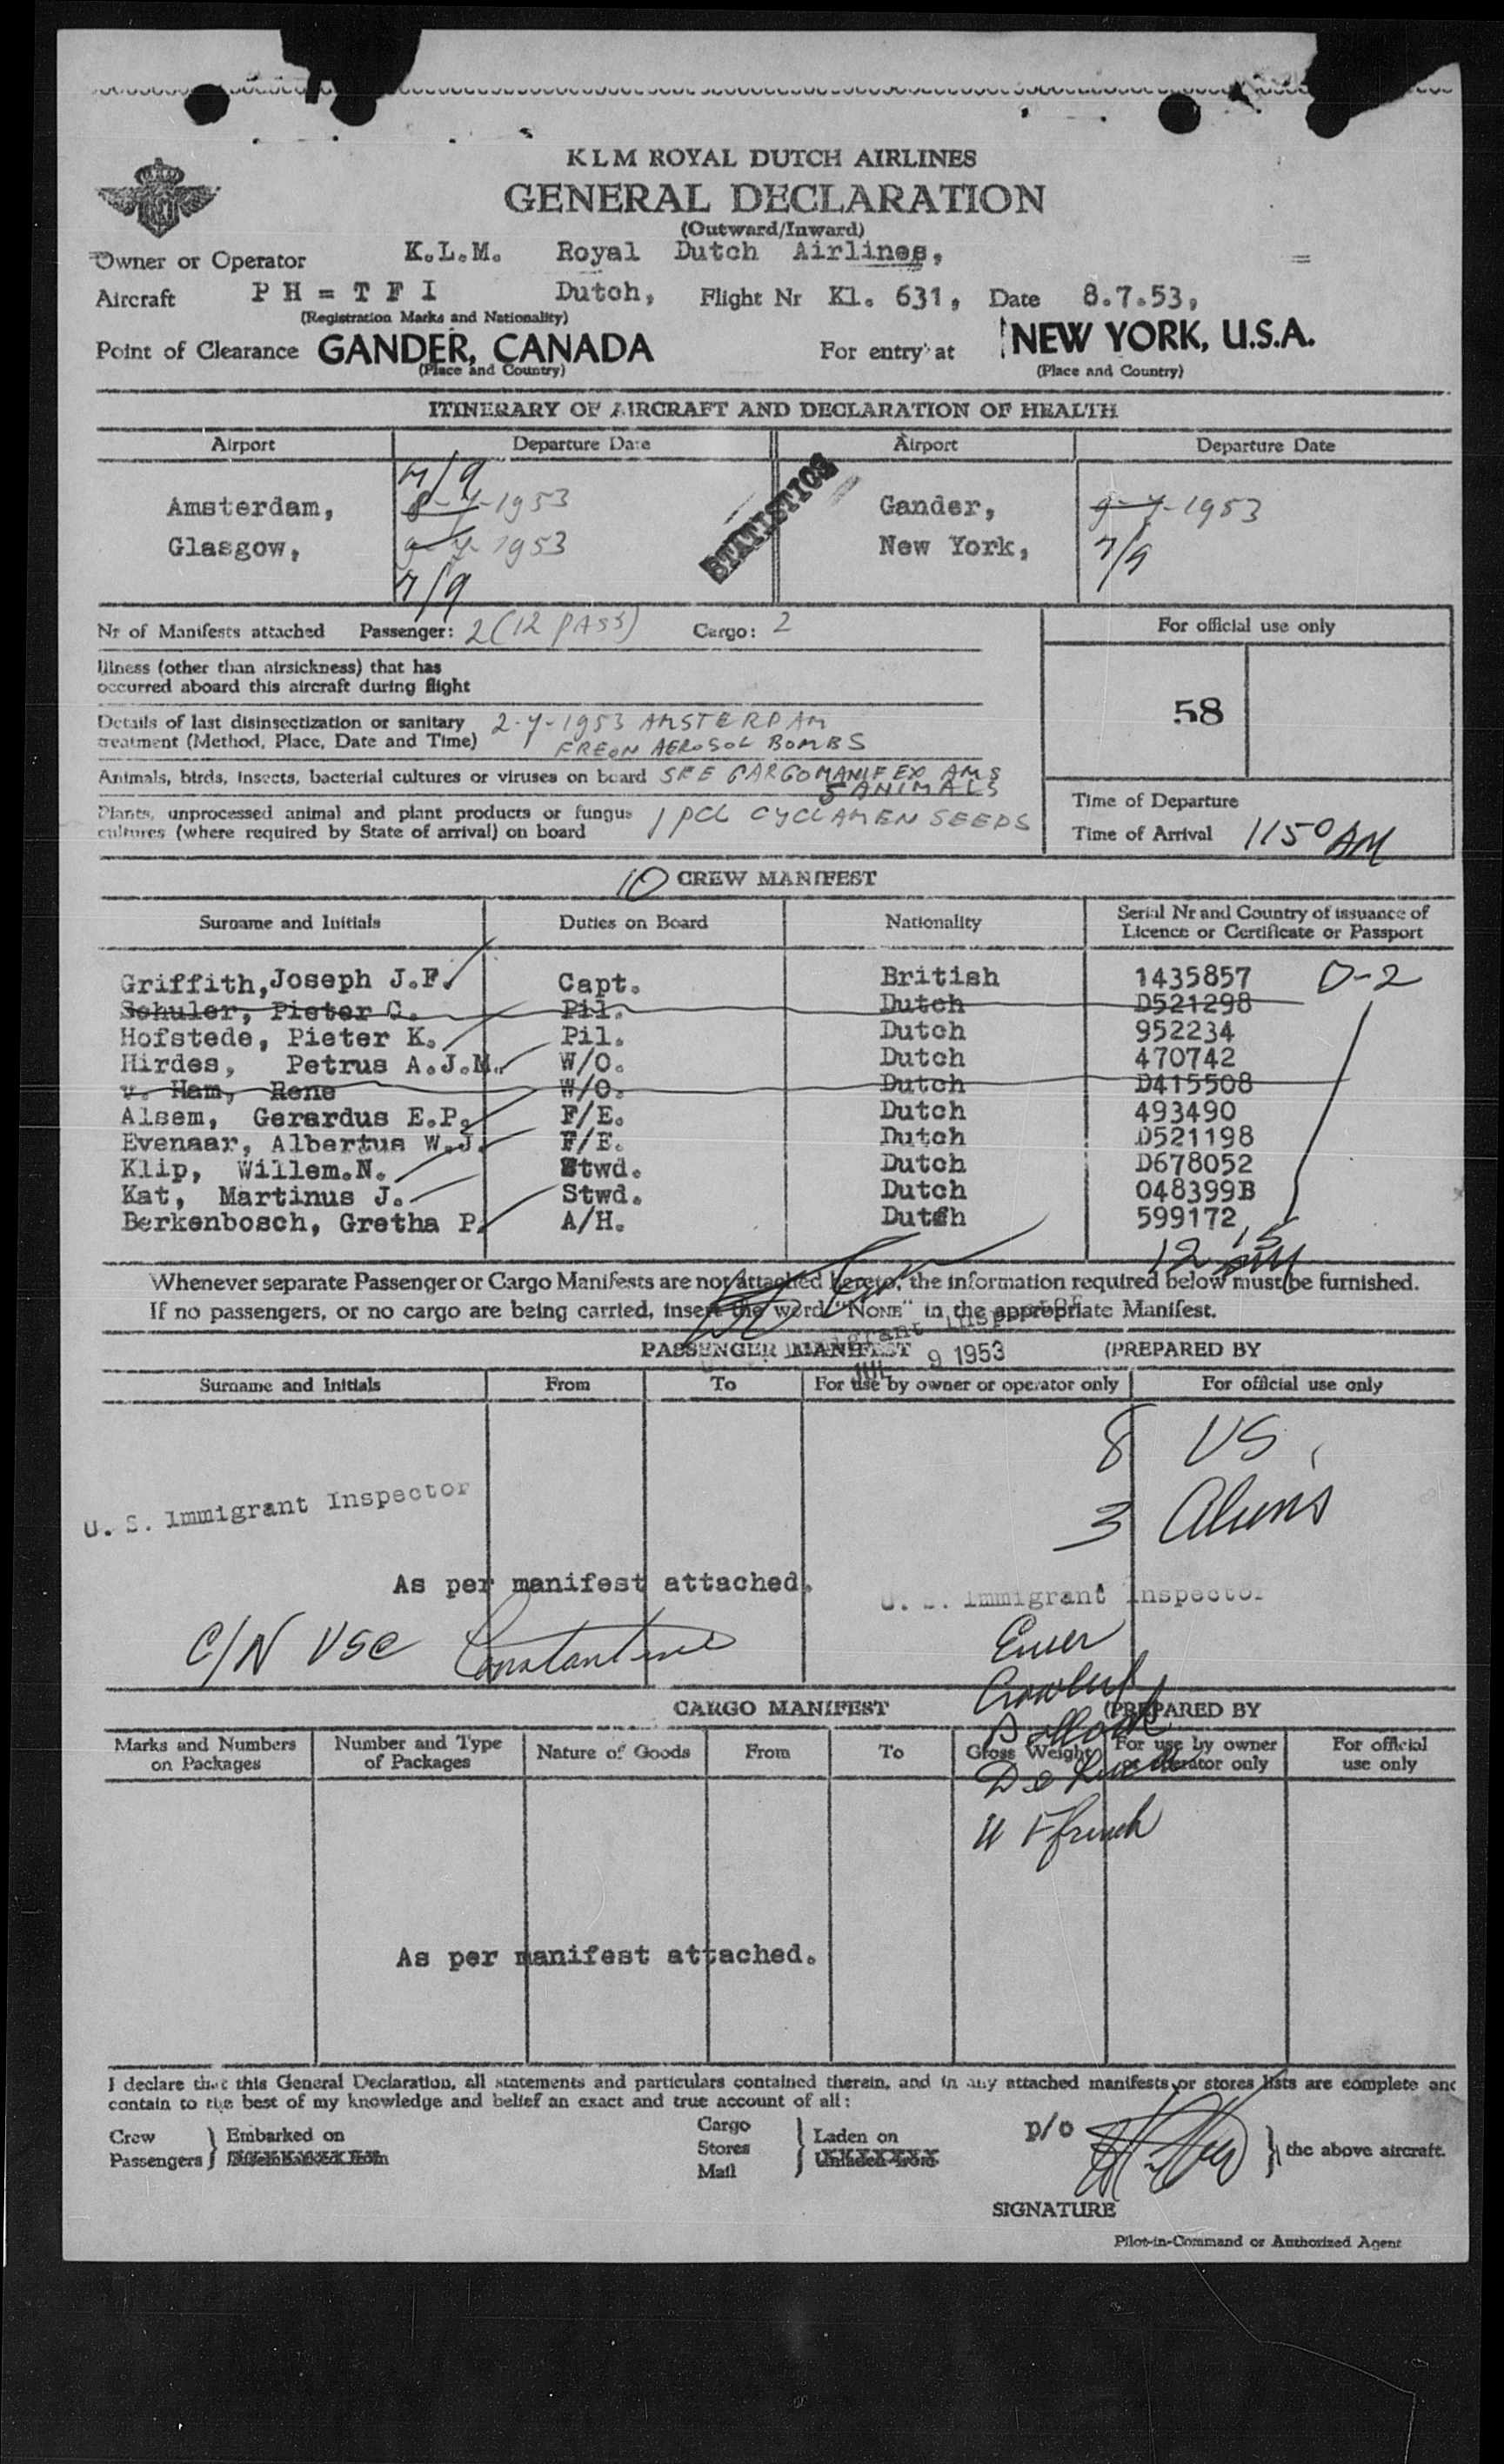 KLM ROYAL DUTCH AIRLINES
GENERAL DECLARATION
(Outward/Inward)
Owner or Operator K.L.M. Royal Dutch Airlines,
Aircraft PH=TFI Dutch, Flight Nr Kl. 631, Date 8.7.53,
(Registration Marks and Nationality)
Point of Clearance GANDER, CANADA For entry at NEW YORK, U.S.A.
(Place and Country) (Place and Country)
ITINERARY OF AIRCRAFT AND DECLARATION OF HEALTH
Airport Departure Date Airport Departure Date
7/9
Amsterdam, 8-7-1953 Gander, 9-7-1953
Glasgow, 9-7-1953 New York, 7/9
7/9
STATISTICS
Nr of Manifests attached Passenger: 2 (12 PASS) Cargo: 2
For official use only
Illness (other than airsickness) that has
occurred aboard this aircraft during flight
58
Details of last disinsectization or sanitary 2-7-1953 AMSTERDAM
treatment (Method, Place, Date and Time) FREON AEROSOL BOMBS
Animals, birds, insects, bacterial cultures or viruses on board SEE CARGOMANIF EX AMS
5 ANIMALS
Plants, unprocessed animal and plant products or fungus 1 PCL CYCLAMEN SEEDS
cultures (where required by State of arrival) on board
Time of Departure
Time of Arrival 1150 AM
10 CREW MANIFEST
Surname and Initials Duties on Board Nationality Serial Nr and Country of issuance of
Licence or Certificate or Passport
Griffith, Joseph J.F. Capt. British 1435857 D-2
Schuler, Pieter C. Pil. Dutch D521298
Hofstede, Pieter K. Pil. Dutch 952234
Hirdes, Petrus A.J.M. W/O. Dutch 470742
v. Ham, Rene W/O. Dutch D415508
Alsem, Gerardus E.P. F/E. Dutch 493490
Evenaar, Albertus W.J. F/E. Dutch D521198
Klip, Willem.N. Stwd. Dutch D678052
Kat, Martinus J. Stwd. Dutch 048399B
Berkenbosch, Gretha P. A/H. Dutch 599172
12 15 PM
Whenever separate Passenger or Cargo Manifests are not attached hereto, the information required below must be furnished.
If no passengers, or no cargo are being carried, insert the word "None" in the appropriate Manifest.
Immigrant Inspector
PASSENGER MANIFEST (PREPARED BY
JUL 9 1953
Surname and Initials From To For use by owner or operator only For official use only
8 US
3 Aliens
U. S. Immigrant Inspector
As per manifest attached.
U. S. Immigrant Inspector
C/N USC Constantine
CARGO MANIFEST (PREPARED BY
Marks and Numbers on Packages Number and Type of Packages Nature of Goods From To Gross Weight For use by owner or operator only For official use only
French
As per manifest attached.
I declare that this General Declaration, all statements and particulars contained therein, and in any attached manifests or stores lists are complete and
contain to the best of my knowledge and belief an exact and true account of all:
Crew Passengers } Embarked on Disembarked from
Cargo Stores Mail } Laden on Unladen from
p/o } the above aircraft.
SIGNATURE
Pilot-in-Command or Authorized Agent